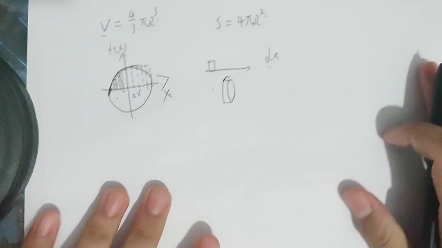 V = 4/3 πR³
S = 4πR²
f(x)
dx
x